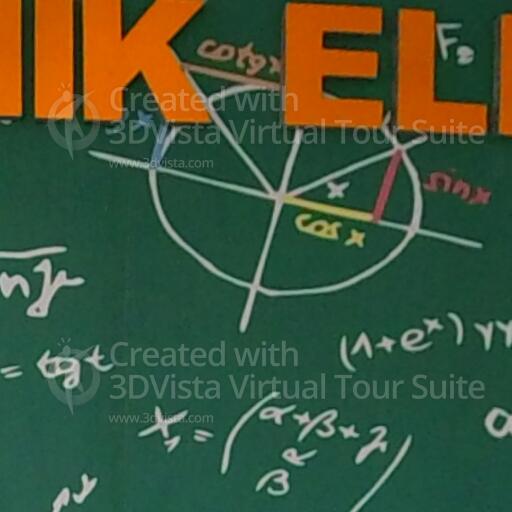 IK EL
cotgx
F₂
Created with
3DVista Virtual Tour Suite
www.3dvista.com
sinx
x
cos x
(1+e^x)
= tgt
Created with
3DVista Virtual Tour Suite
www.3dvista.com
α+β+γ
α
β